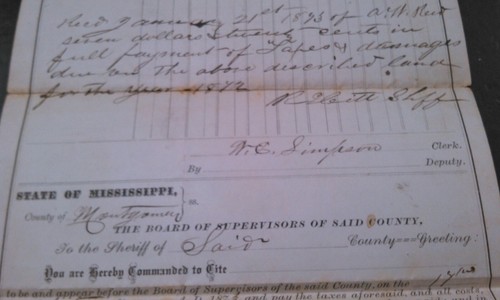 Recd January 21st 1873 of A. W. Reid
seven dollars & twenty cents in
full payment of Taxes & damages
due on the above described land
for the year 1872
R. Scott Shff
W. C. Simpson Clerk.
By Deputy.
STATE OF MISSISSIPPI, } ss.
County of Montgomery
THE BOARD OF SUPERVISORS OF SAID COUNTY,
To the Sheriff of Said County—Greeting:
You are Hereby Commanded to Cite
to be and appear before the Board of Supervisors of the said County, on the
and pay the taxes aforesaid, and all costs,